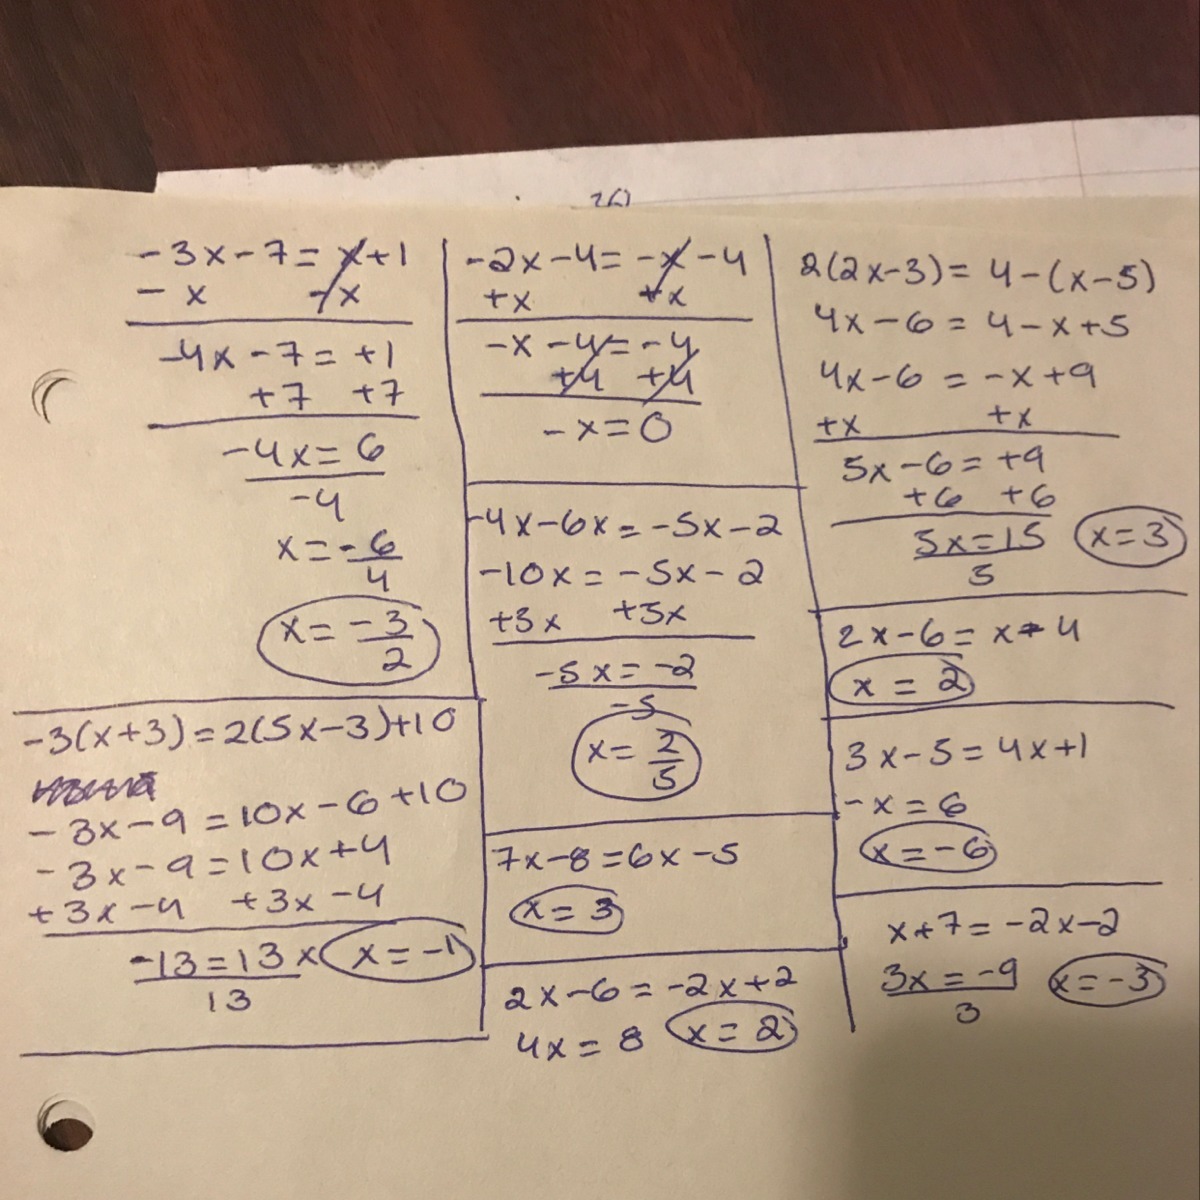 -3x-7=x+1
-x -x
-4x-7=+1
+7 +7
-4x=6
-4
x=-6
4
x=-3
2
-3(x+3)=2(5x-3)+10
-3x-9=10x-6+10
-3x-9=10x+4
+3x-4 +3x-4
-13=13x x=-1
13
-2x-4=-x-4
+x +x
-x-4=-4
+4 +4
-x=0
-4x-6x=-5x-2
-10x=-5x-2
+5x +5x
-5x=-2
-5
x=2
5
7x-8=6x-5
x=3
2x-6=-2x+2
4x=8 x=2
2(2x-3)=4-(x-5)
4x-6=4-x+5
4x-6=-x+9
+x +x
5x-6=+9
+6 +6
5x=15 x=3
5
2x-6=x-4
x=2
3x-5=4x+1
-x=6
x=-6
x+7=-2x-2
3x=-9 x=-3
3